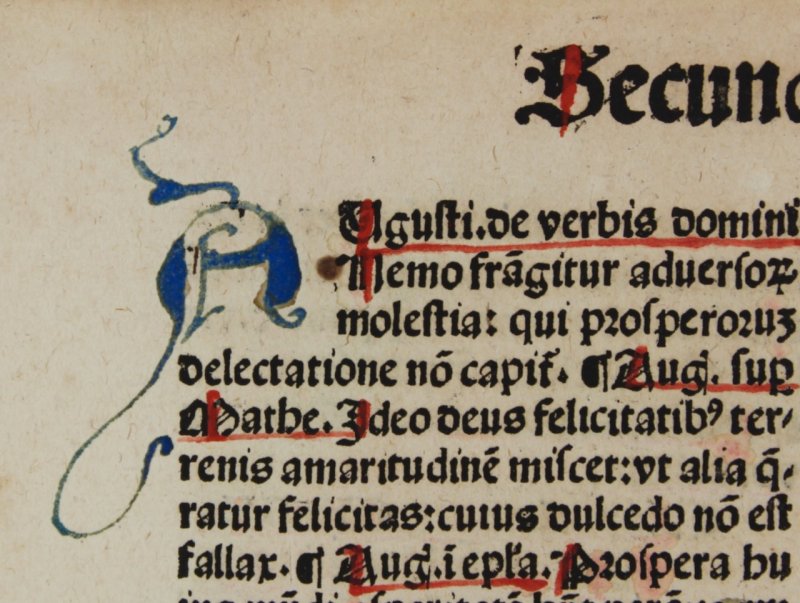 Secun
A Ugusti. de verbis domini
Nemo frãgitur aduersoꝝ
molestia: qui prosperoruꝫ
delectatione nõ capit̃. ¶ Aug̃. sup̲
Mathe. Ideo deus felicitatibꝰ ter⸗
renis amaritudinẽ miscet: vt alia q̃⸗
ratur felicitas: cuius dulcedo nõ est
fallax. ¶ Aug̃. ĩ epła. Prospera hu